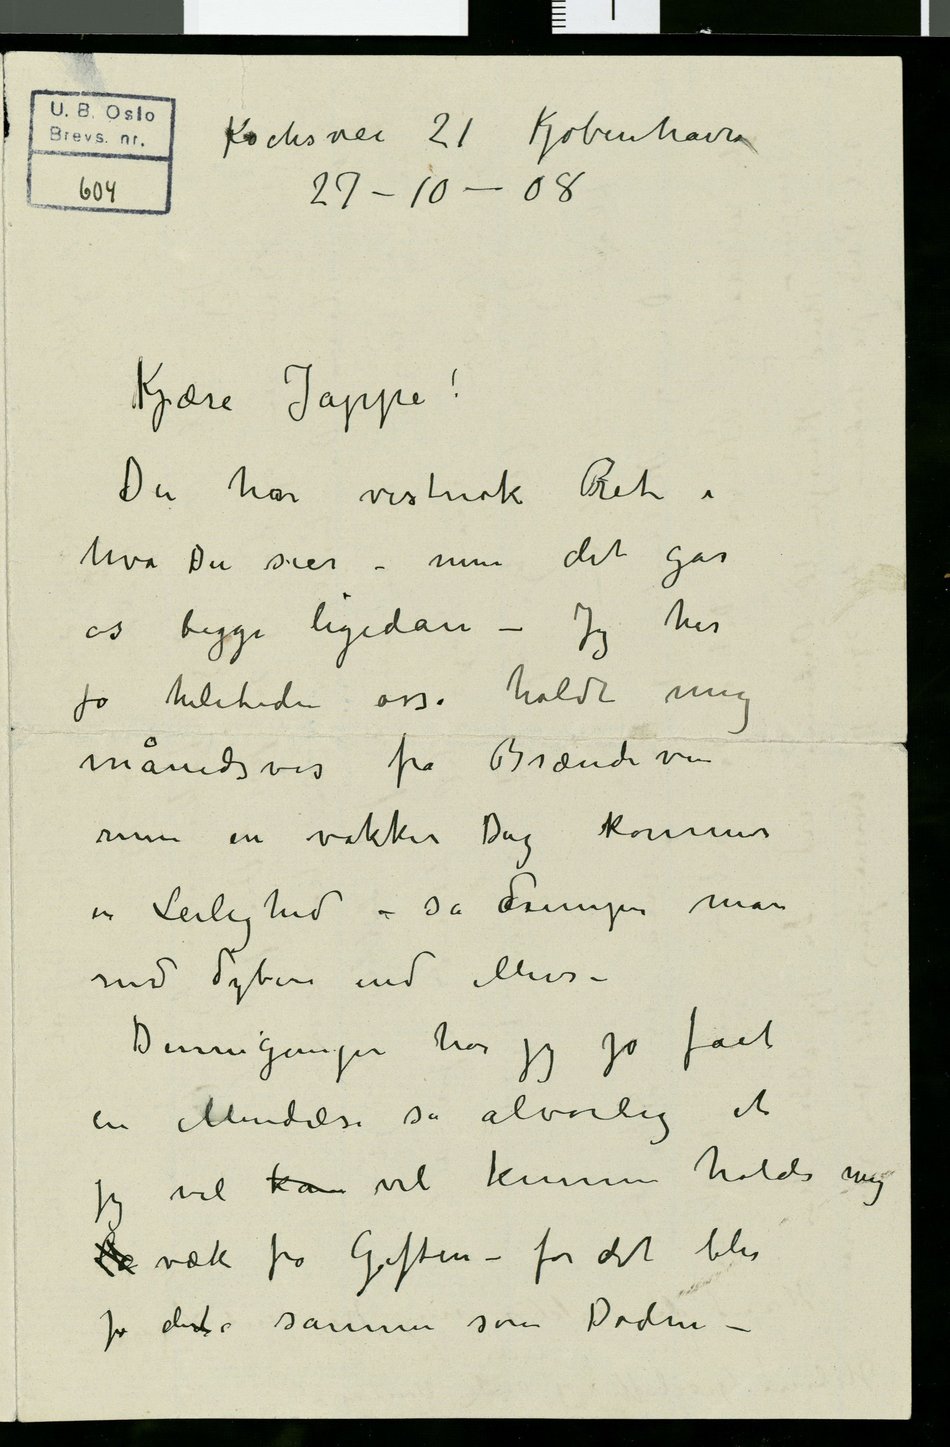 U. B. Oslo
Brevs. nr.
604
Kochsvei 21 Kjøbenhavn
27 – 10 – 08
Kjære Jappe!
Du har vistnok Ret i
hva Du sier – men det gar
os begge ligedan – Jeg har
jo heletiden osså holdt mig
månedsvis fra Brændevin
men en vakker Dag kommer
en Leilighed – så dumper man
ned dybere end ellers –
Dennegangen har jeg jo fået
en Mindelse så alvorlig at
jeg vel kan vel kunne holde mig
væk fra Giften – for det blir
jo det samme som Døden –